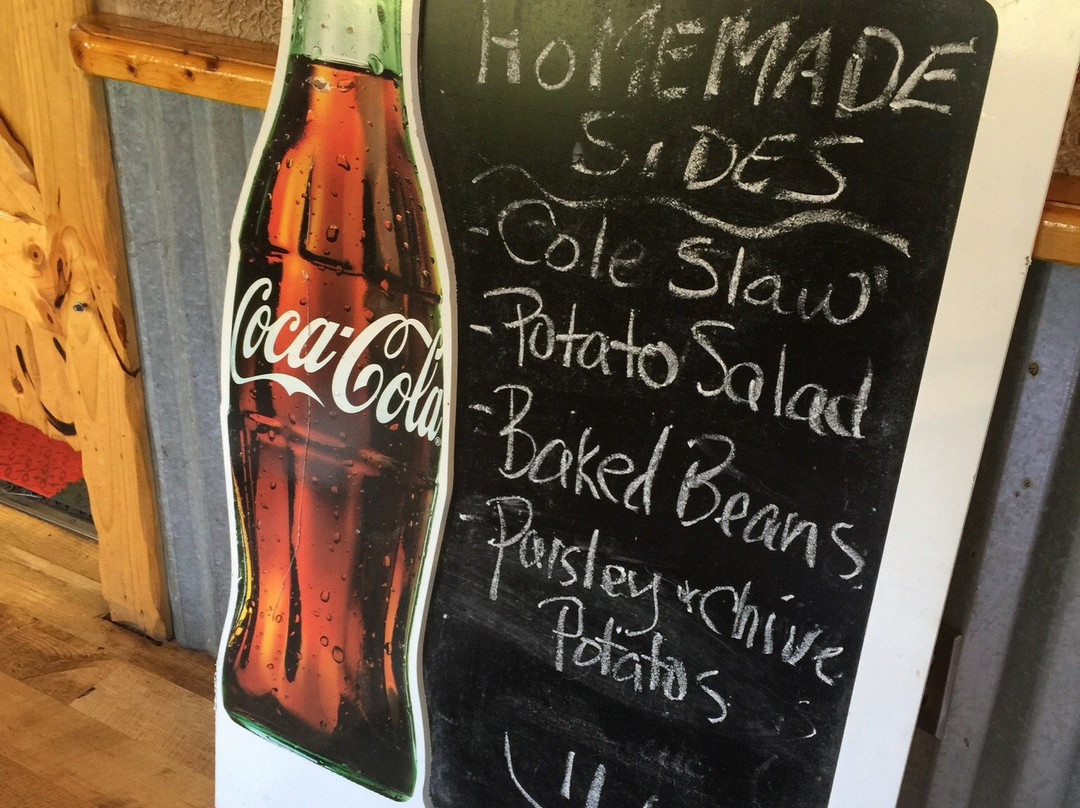 HOMEMADE
SIDES
- Cole Slaw
- Potato Salad
- Baked Beans
- Parsley + Chive
Potatos
Coca-Cola